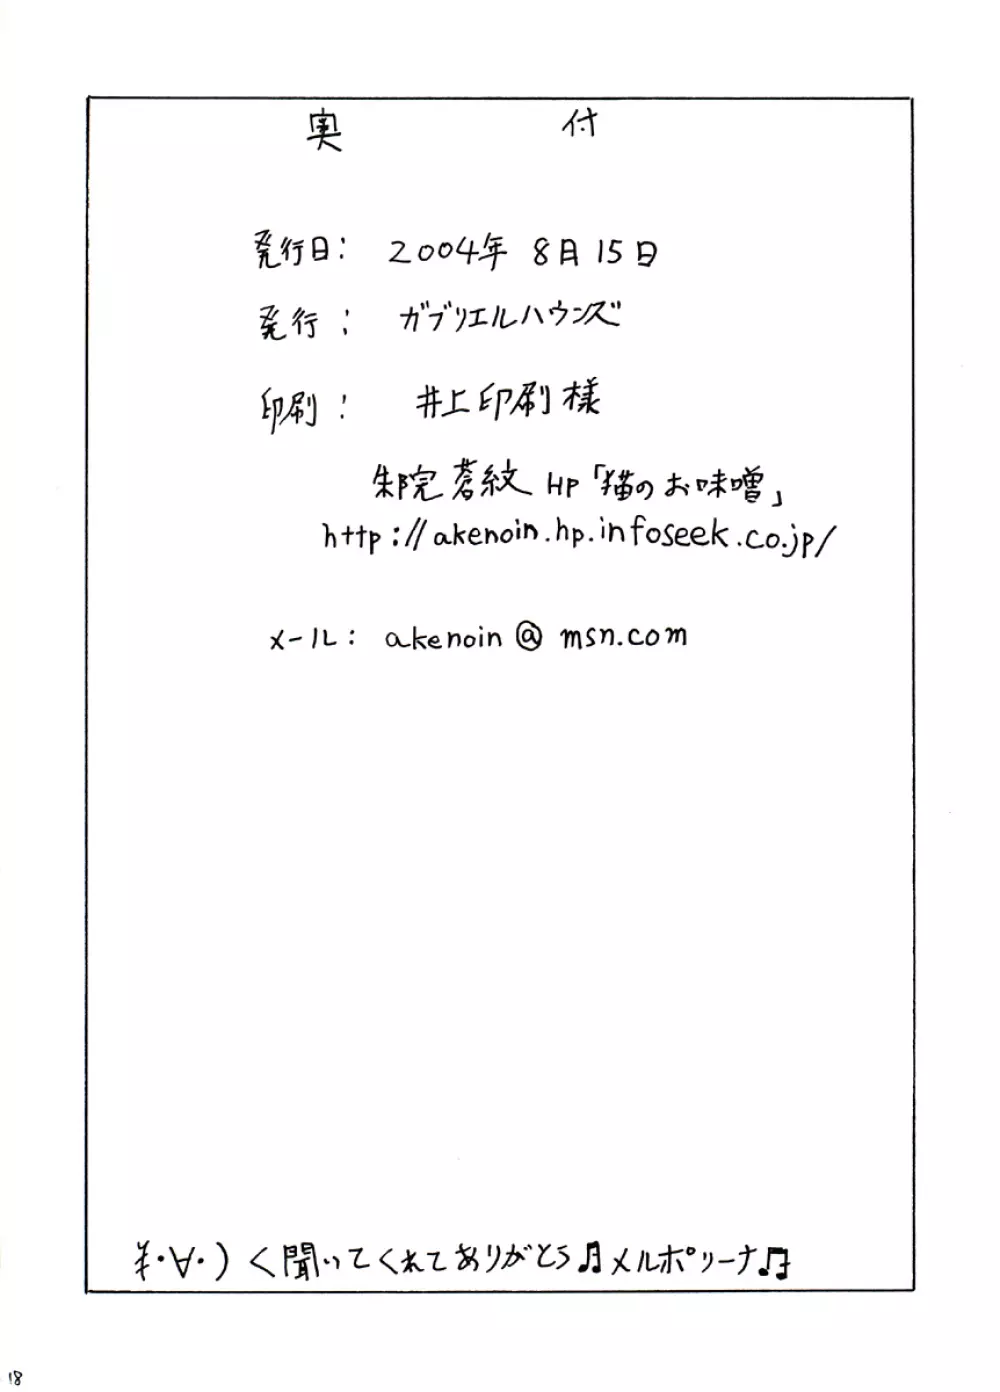 奥付
発行日: 2004年 8月15日
発行: ガブリエルハウンズ
印刷: 井上印刷様
朱院蒼紋 HP「猫のお味噌」
http://akenoin.hp.infoseek.co.jp/
メール: akenoin@msn.com
¥・∀・)く聞いてくれてありがとう♫メルポリーナ♫
18